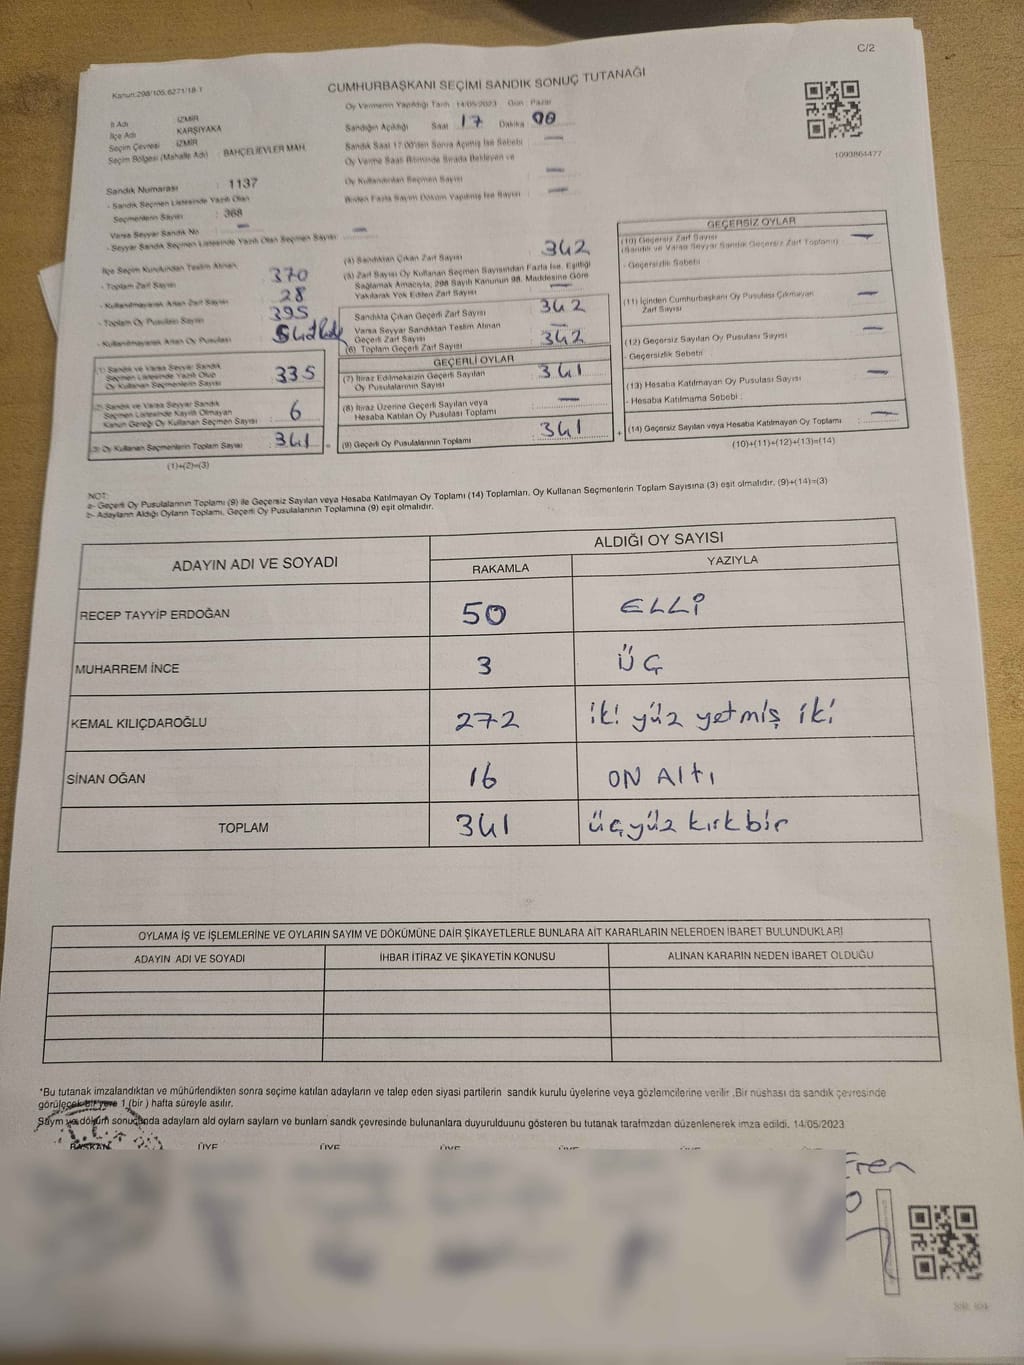 C/2
Kanun:298/105,6271/18-1
CUMHURBAŞKANI SEÇİMİ SANDIK SONUÇ TUTANAĞI
Oy Vermenin Yapıldığı Tarih : 14/05/2023 Gün : Pazar
İl Adı : İZMİR
İlçe Adı : KARŞIYAKA
Seçim Çevresi : İZMİR
Seçim Bölgesi (Mahalle Adı) : BAHÇELİEVLER MAH.
Sandığın Açıldığı Saat 17 Dakika 00
Sandık Saat 17:00'den Sonra Açılmış İse Sebebi : —
Oy Verme Saati Bitiminde Sırada Bekleyen ve
Oy Kullandırılan Seçmen Sayısı : —
Birden Fazla Sayım Döküm Yapılmış İse Sayısı : —
1093864477
Sandık Numarası : 1137
- Sandık Seçmen Listesinde Yazılı Olan
Seçmenlerin Sayısı : 368
Varsa Seyyar Sandık No : —
- Seyyar Sandık Seçmen Listesinde Yazılı Olan Seçmen Sayısı : —
İlçe Seçim Kurulundan Teslim Alınan
- Toplam Zarf Sayısı : 370
- Kullanılmayarak Artan Zarf Sayısı : 28
- Toplam Oy Pusulası Sayısı : 395
- Kullanılmayarak Artan Oy Pusulası :
(1) Sandık ve Varsa Seyyar Sandık
Seçmen Listesinde Yazılı Olup
Oy Kullanan Seçmenlerin Sayısı : 335
(2) Sandık ve Varsa Seyyar Sandık
Seçmen Listesinde Kayıtlı Olmayan
Kanun Gereği Oy Kullanan Seçmen Sayısı : 6
(3) Oy Kullanan Seçmenlerin Toplam Sayısı : 341 =
(1)+(2)=(3)
(4) Sandıktan Çıkan Zarf Sayısı : 342
(5) Zarf Sayısı Oy Kullanan Seçmen Sayısından Fazla İse, Eşitliği
Sağlamak Amacıyla, 298 Sayılı Kanunun 98. Maddesine Göre
Yakılarak Yok Edilen Zarf Sayısı : —
Sandıkta Çıkan Geçerli Zarf Sayısı : 342
Varsa Seyyar Sandıktan Teslim Alınan
Geçerli Zarf Sayısı : —
(6) Toplam Geçerli Zarf Sayısı : 342
GEÇERLİ OYLAR
(7) İtiraz Edilmeksizin Geçerli Sayılan
Oy Pusulalarının Sayısı : 341
(8) İtiraz Üzerine Geçerli Sayılan veya
Hesaba Katılan Oy Pusulası Toplamı : —
(9) Geçerli Oy Pusulalarının Toplamı : 341 +
GEÇERSİZ OYLAR
(10) Geçersiz Zarf Sayısı
(Sandık ve Varsa Seyyar Sandık Geçersiz Zarf Toplamı) : —
- Geçersizlik Sebebi :
(11) İçinden Cumhurbaşkanı Oy Pusulası Çıkmayan
Zarf Sayısı : —
(12) Geçersiz Sayılan Oy Pusulası Sayısı : —
- Geçersizlik Sebebi :
(13) Hesaba Katılmayan Oy Pusulası Sayısı : —
- Hesaba Katılmama Sebebi :
(14) Geçersiz Sayılan veya Hesaba Katılmayan Oy Toplamı : —
(10)+(11)+(12)+(13)=(14)
NOT:
a- Geçerli Oy Pusulalarının Toplamı (9) ile Geçersiz Sayılan veya Hesaba Katılmayan Oy Toplamı (14) Toplamları, Oy Kullanan Seçmenlerin Toplam Sayısına (3) eşit olmalıdır. (9)+(14)=(3)
b- Adayların Aldığı Oyların Toplamı, Geçerli Oy Pusulalarının Toplamına (9) eşit olmalıdır.
ADAYIN ADI VE SOYADI
ALDIĞI OY SAYISI
RAKAMLA YAZIYLA
RECEP TAYYİP ERDOĞAN 50 ELLİ
MUHARREM İNCE 3 ÜÇ
KEMAL KILIÇDAROĞLU 272 iki yüz yetmiş iki
SİNAN OĞAN 16 ON Altı
TOPLAM 341 üçyüz kırkbir
OYLAMA İŞ VE İŞLEMLERİNE VE OYLARIN SAYIM VE DÖKÜMÜNE DAİR ŞİKAYETLERLE BUNLARA AİT KARARLARIN NELERDEN İBARET BULUNDUKLARI
ADAYIN ADI VE SOYADI İHBAR İTİRAZ VE ŞİKAYETİN KONUSU ALINAN KARARIN NEDEN İBARET OLDUĞU
*Bu tutanak imzalandıktan ve mühürlendikten sonra seçime katılan adayların ve talep eden siyasi partilerin sandık kurulu üyelerine veya gözlemcilerine verilir .Bir nüshası da sandık çevresinde
görülecek bir yere 1 (bir ) hafta süreyle asılır.
Sayım ve döküm sonuçında adaylarn ald oylarn saylarn ve bunlarn sandk çevresinde bulunanlara duyurulduunu gösteren bu tutanak tarafmzdan düzenlenerek imza edildi. 14/05/2023
BAŞKAN ÜYE ÜYE ÜYE